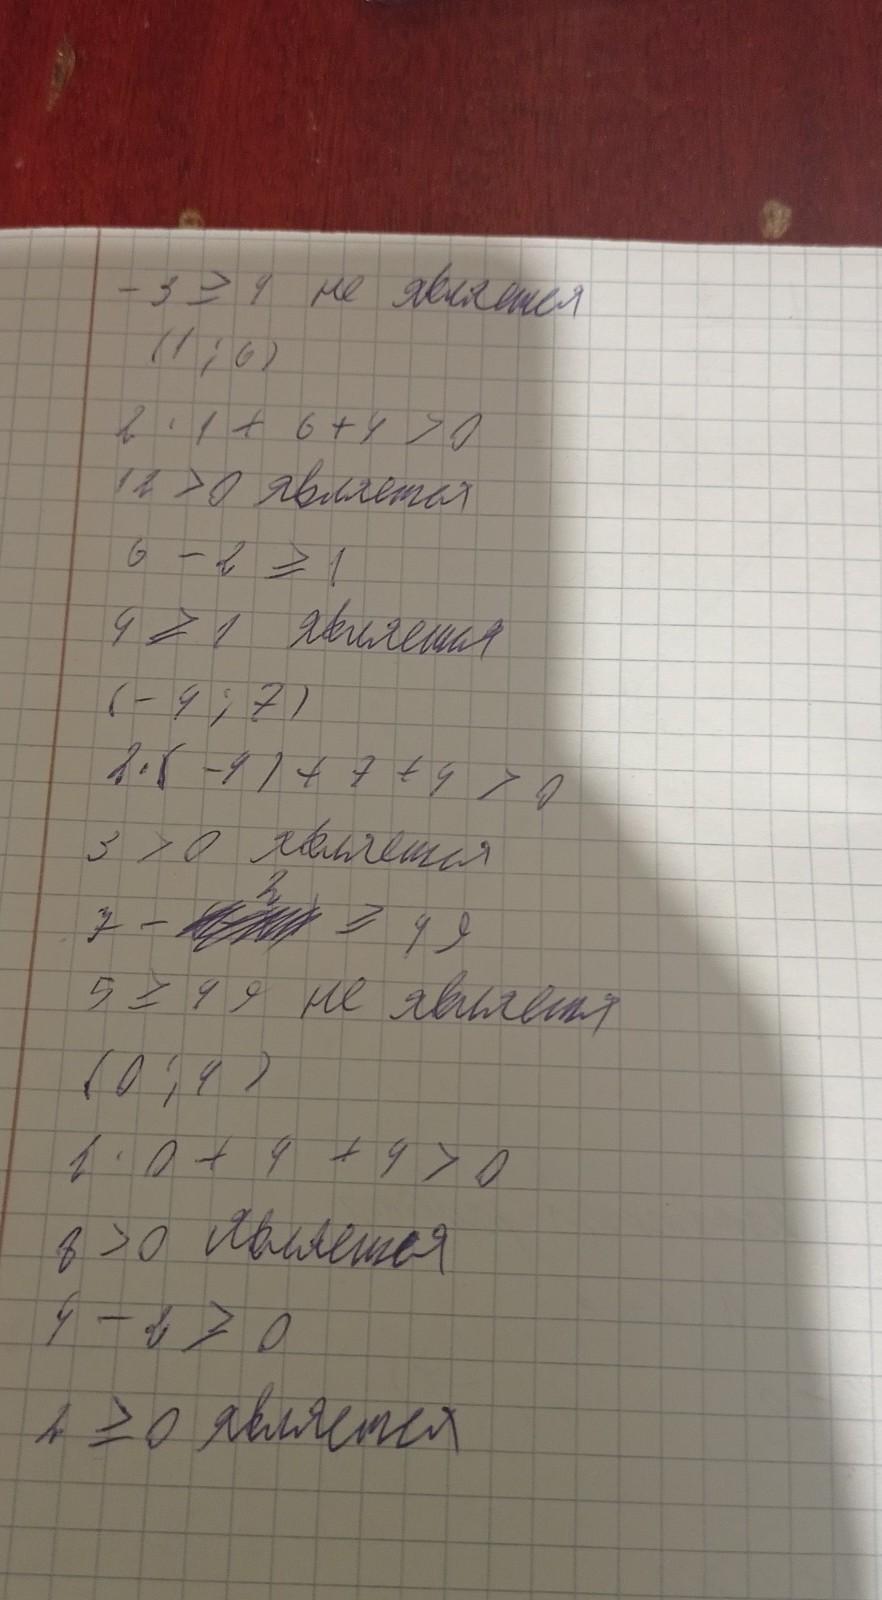 -3 ≥ 4 не является
(1; 6)
2 · 1 + 6 + 4 > 0
12 > 0 является
6 - 2 ≥ 1
4 ≥ 1 является
(-4; 7)
2·(-4) + 7 + 4 > 0
3 > 0 является
7 - 2 ≥ 49
5 ≥ 49 не является
(0; 4)
2 · 0 + 4 + 4 > 0
8 > 0 является
4 - 2 ≥ 0
2 ≥ 0 является